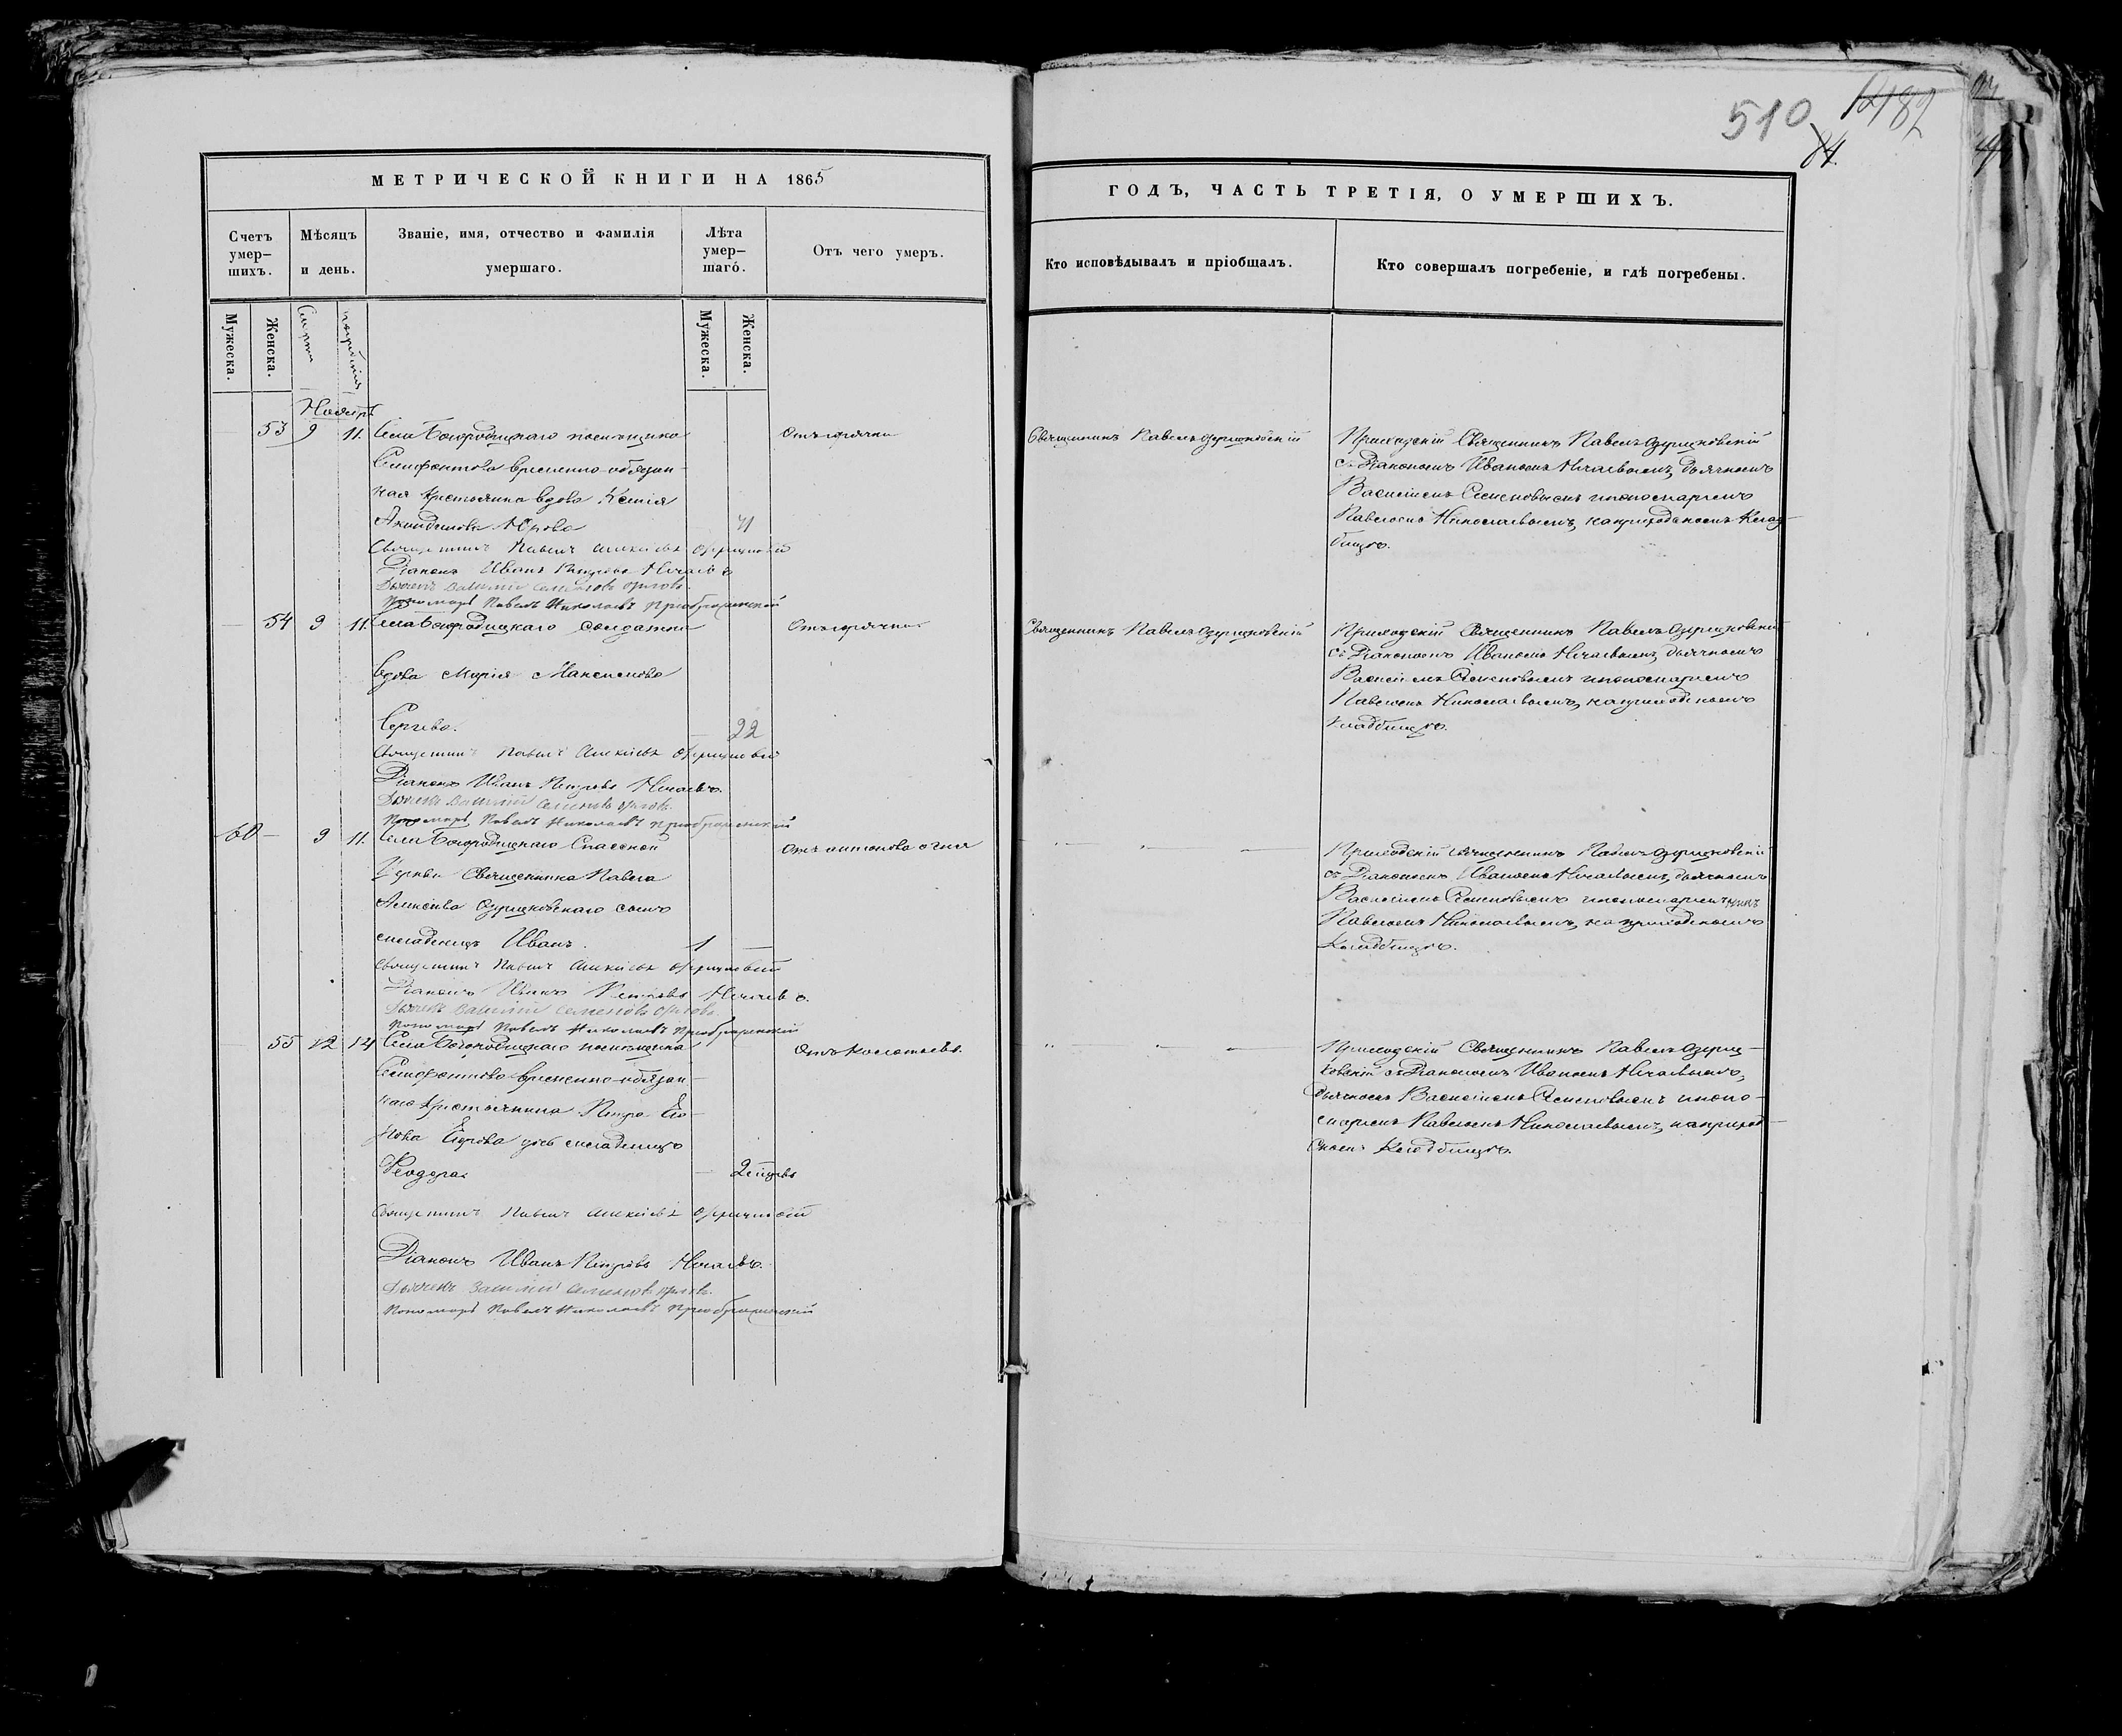 510
182
84.
МЕТРИЧЕСКОЙ КНИГИ НА 1865
ГОДЪ, ЧАСТЬ ТРЕТІЯ, О УМЕРШИХЪ.
Счетъ умер-
шихъ.
Мѣсяцъ
и день.
Званіе, имя, отчество и фамилія
умершаго.
Лѣта
умер-
шаго.
Отъ чего умеръ.
Кто исповѣдывалъ и пріобщалъ.
Кто совершалъ погребеніе, и гдѣ погребены.
Мужеска.
Женска.
Смерти
погребенія
Мужеска.
Женска.
Ноябрь
53 9 11. Села Богородицкаго помѣщика
временно-обязан-
ная крестьянка вдова Ксенія
71
Священникъ Павелъ Алексѣевъ
Діаконъ Иванъ Петровъ Нечаевъ
Дьячекъ Василій Семеновъ Орловъ
Пономарь Павелъ Николаевъ Преображенскій
Отъ горячки
Священникъ Павелъ Озерицковскій
Приходскій Священникъ Павелъ Озерицковскій
съ Діакономъ Иваномъ Нечаевымъ, дьячкомъ
Василіемъ Семеновымъ и пономаремъ
Павломъ Николаевымъ, на приходскомъ клад-
бищѣ.
54 9 11. Села Богородицкаго солдатка
вдова Марія Максимова
Сергѣева. 22
Священникъ Павелъ Алексѣевъ
Діаконъ Иванъ Петровъ Нечаевъ.
Дьячекъ Василій Семеновъ Орловъ.
Пономарь Павелъ Николаевъ Преображенскій
Отъ горячки
Священникъ Павелъ Озерицковскій
Приходскій Священникъ Павелъ Озерицковскій
съ Діакономъ Иваномъ Нечаевымъ, дьячкомъ
Василіемъ Семеновымъ и пономаремъ
Павломъ Николаевымъ, на приходскомъ
кладбищѣ.
60 — 9 11. Села Богородицкаго Спасской
Церкви Священника Павла
Алексѣева Озерицковскаго сынъ
младенецъ Иванъ. 1 —
Священникъ Павелъ Алексѣевъ
Діаконъ Иванъ Петровъ Нечаевъ.
Дьячекъ Василій Семеновъ Орловъ
Пономарь Павелъ Николаевъ Преображенскій
Отъ антонова огня
Приходскій священникъ Павелъ Озерицковскій
съ Діакономъ Иваномъ Нечаевымъ, дьячкомъ
Василіемъ Семеновымъ и пономаремъ
Павломъ Николаевымъ, на приходскомъ
кладбищѣ.
55 12 14 Села Богородицкаго помѣщика
временно-обязан-
наго крестьянина Петра
Егорова дочь младенецъ
Ѳеодора. 2
Священникъ Павелъ Алексѣевъ
Діаконъ Иванъ Петровъ Нечаевъ.
Дьячекъ Василій Семеновъ Орловъ.
Пономарь Павелъ Николаевъ Преображенскій
Приходскій Священникъ Павелъ Озериц-
ковскій съ Діакономъ Иваномъ Нечаевымъ,
дьячкомъ Василіемъ Семеновымъ и поно-
маремъ Павломъ Николаевымъ, на приход-
скомъ кладбищѣ.